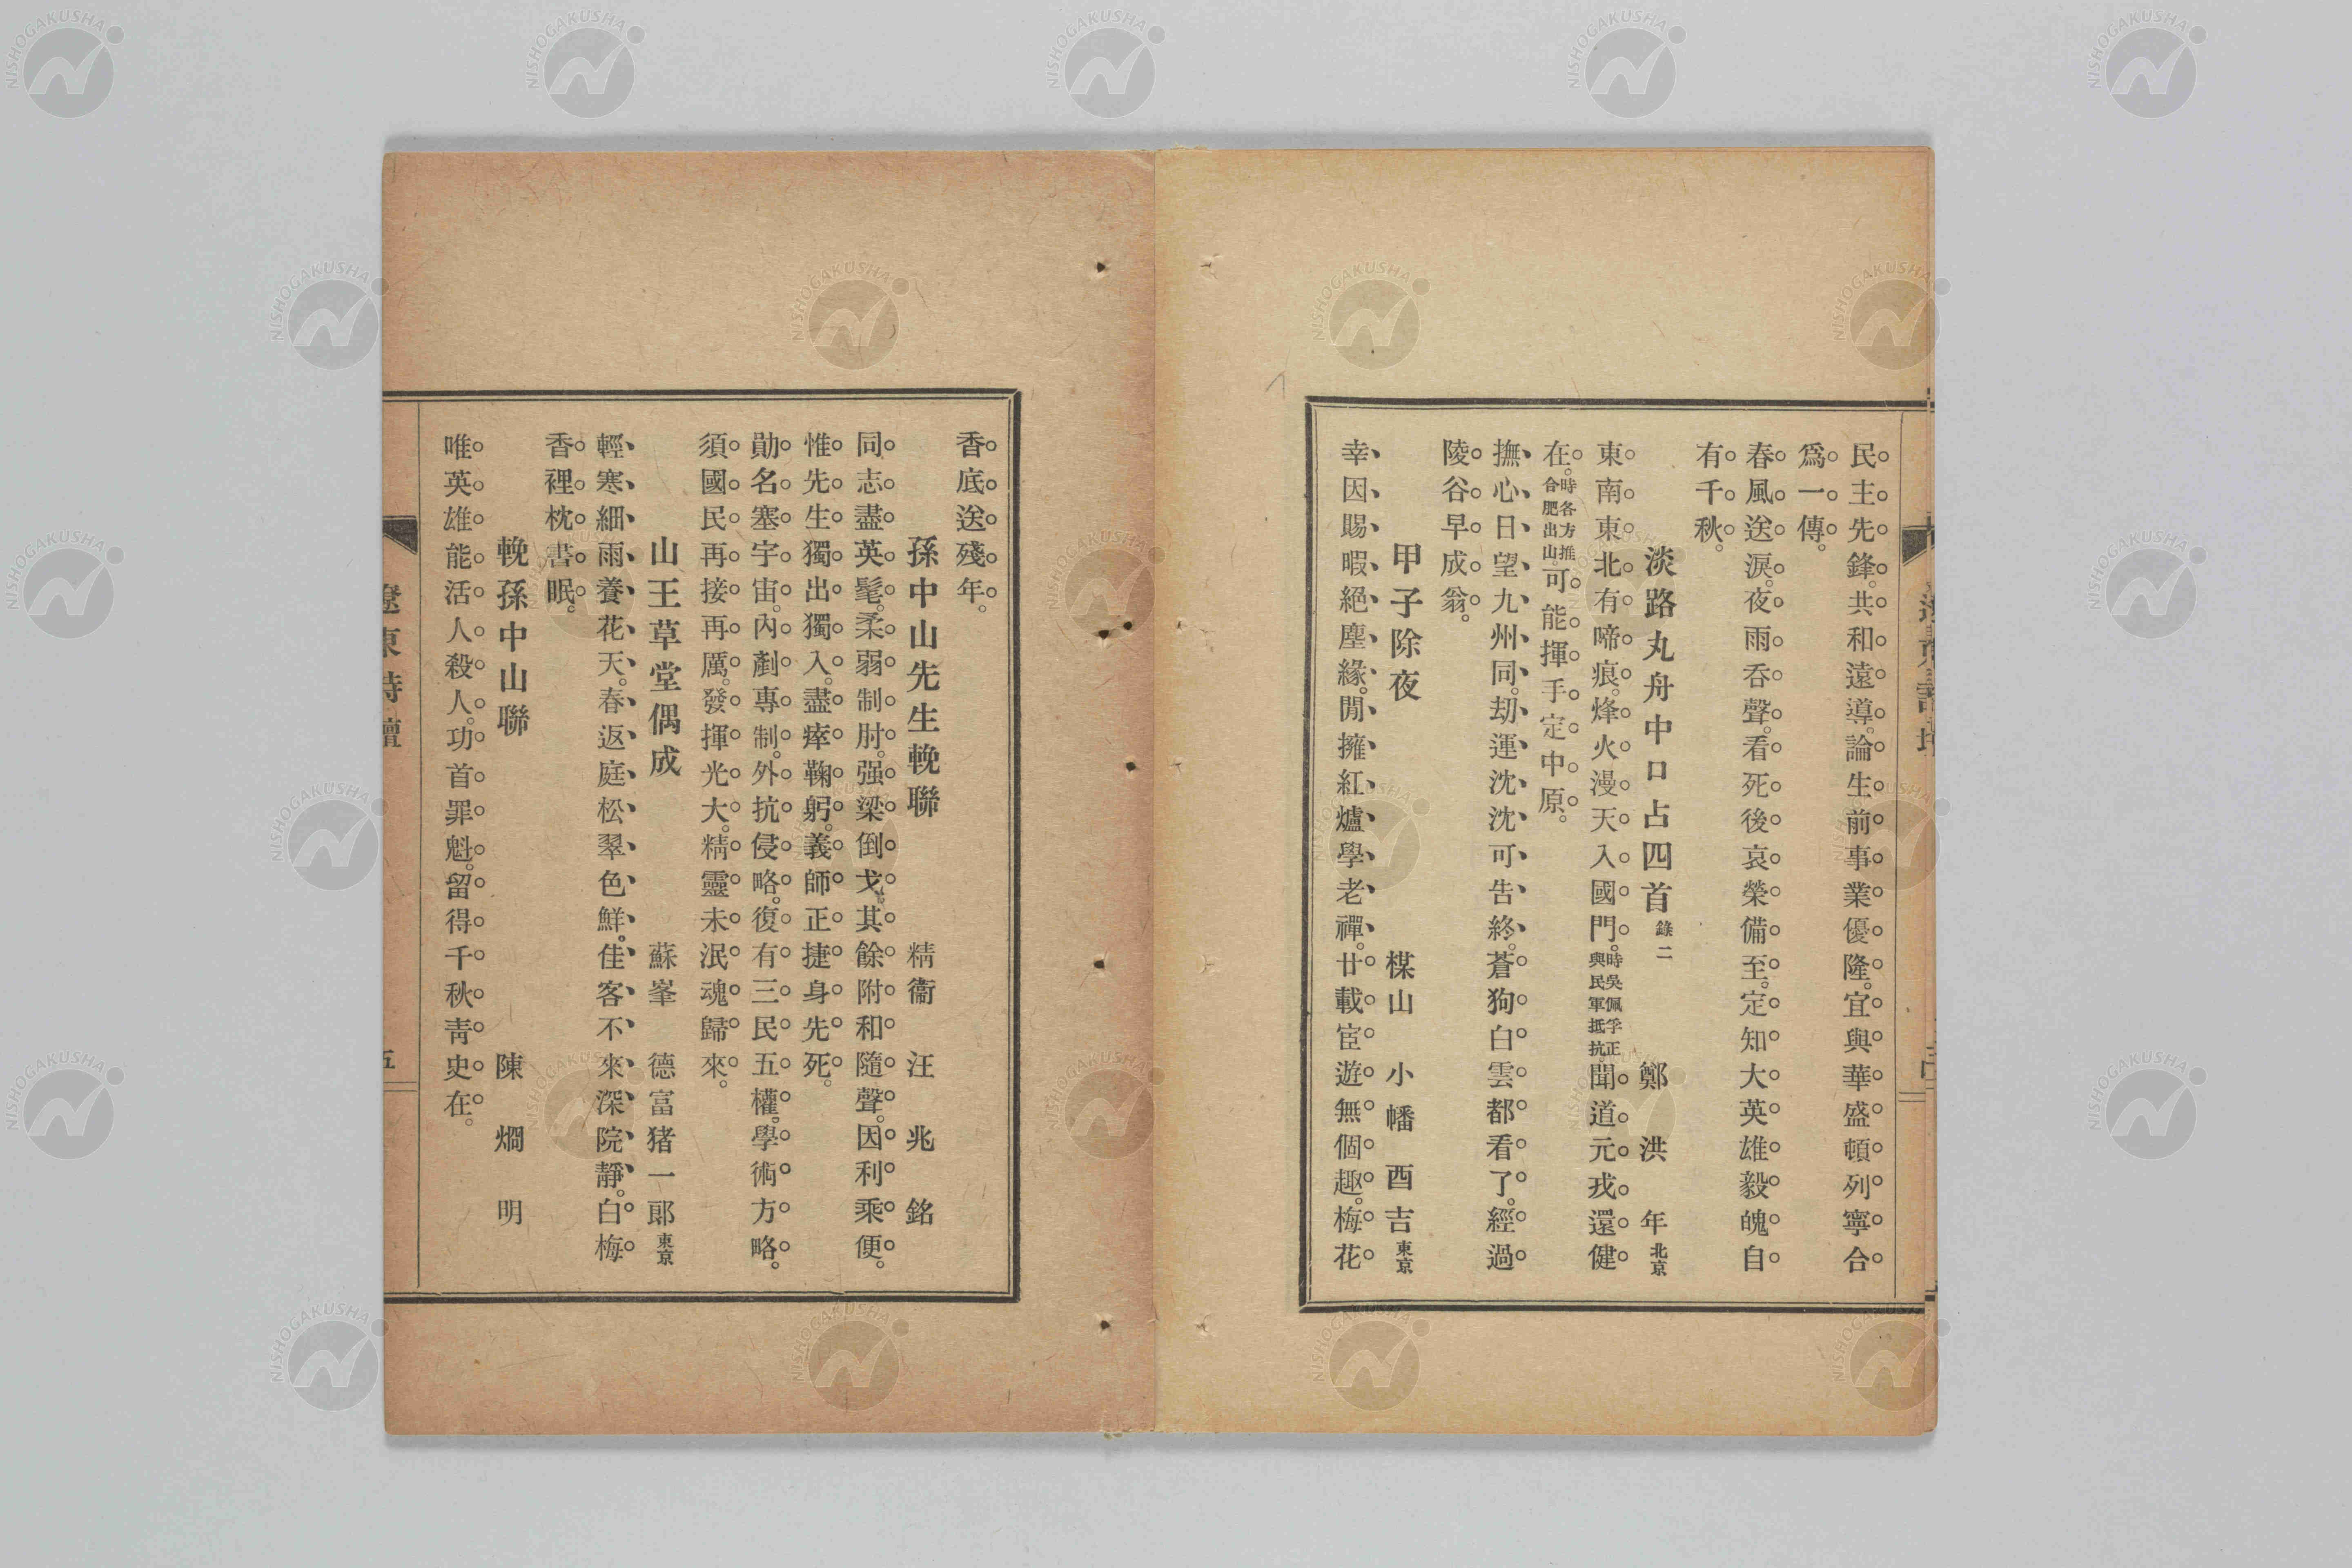 民主先鋒。共和遠導。論生前事業優隆。宜與華盛頓列寧合
爲一傳。
春風送淚。夜雨吞聲。看死後哀榮備至。定知大英雄毅魄自
有千秋。
淡路丸舟中口占四首 錄二 鄭洪年 北京
東南東北有啼痕。烽火漫天入國門。時吳佩孚正與民軍抵抗。聞道元戎還健
在。時各方推合肥出山。可能揮手定中原。
撫心日望九州同。劫運沈沈可告終。蒼狗白雲都看了。經過
陵谷早成翁。
甲子除夜 楳山 小幡酉吉 東京
幸因賜暇絕塵緣。閒擁紅爐學老禪。廿載宦遊無個趣。梅花
香底送殘年。
孫中山先生輓聯 精衞 汪兆銘
同志盡英髦。柔弱制肘。强梁倒戈。其餘附和隨聲。因利乘便。
惟先生獨出獨入。盡瘁鞠躬。義師正捷身先死。
勛名塞宇宙。內剷專制。外抗侵略。復有三民五權。學術方略。
須國民再接再厲。發揮光大。精靈未泯魂歸來。
山王草堂偶成 蘇峯 德富猪一郎 東京
輕寒細雨養花天。春返庭松翠色鮮。佳客不來深院靜。白梅
香裡枕書眠。
輓孫中山聯 陳烱明
唯英雄能活人殺人。功首罪魁。留得千秋靑史在。
遼東詩壇
五
NISHOGAKUSHA